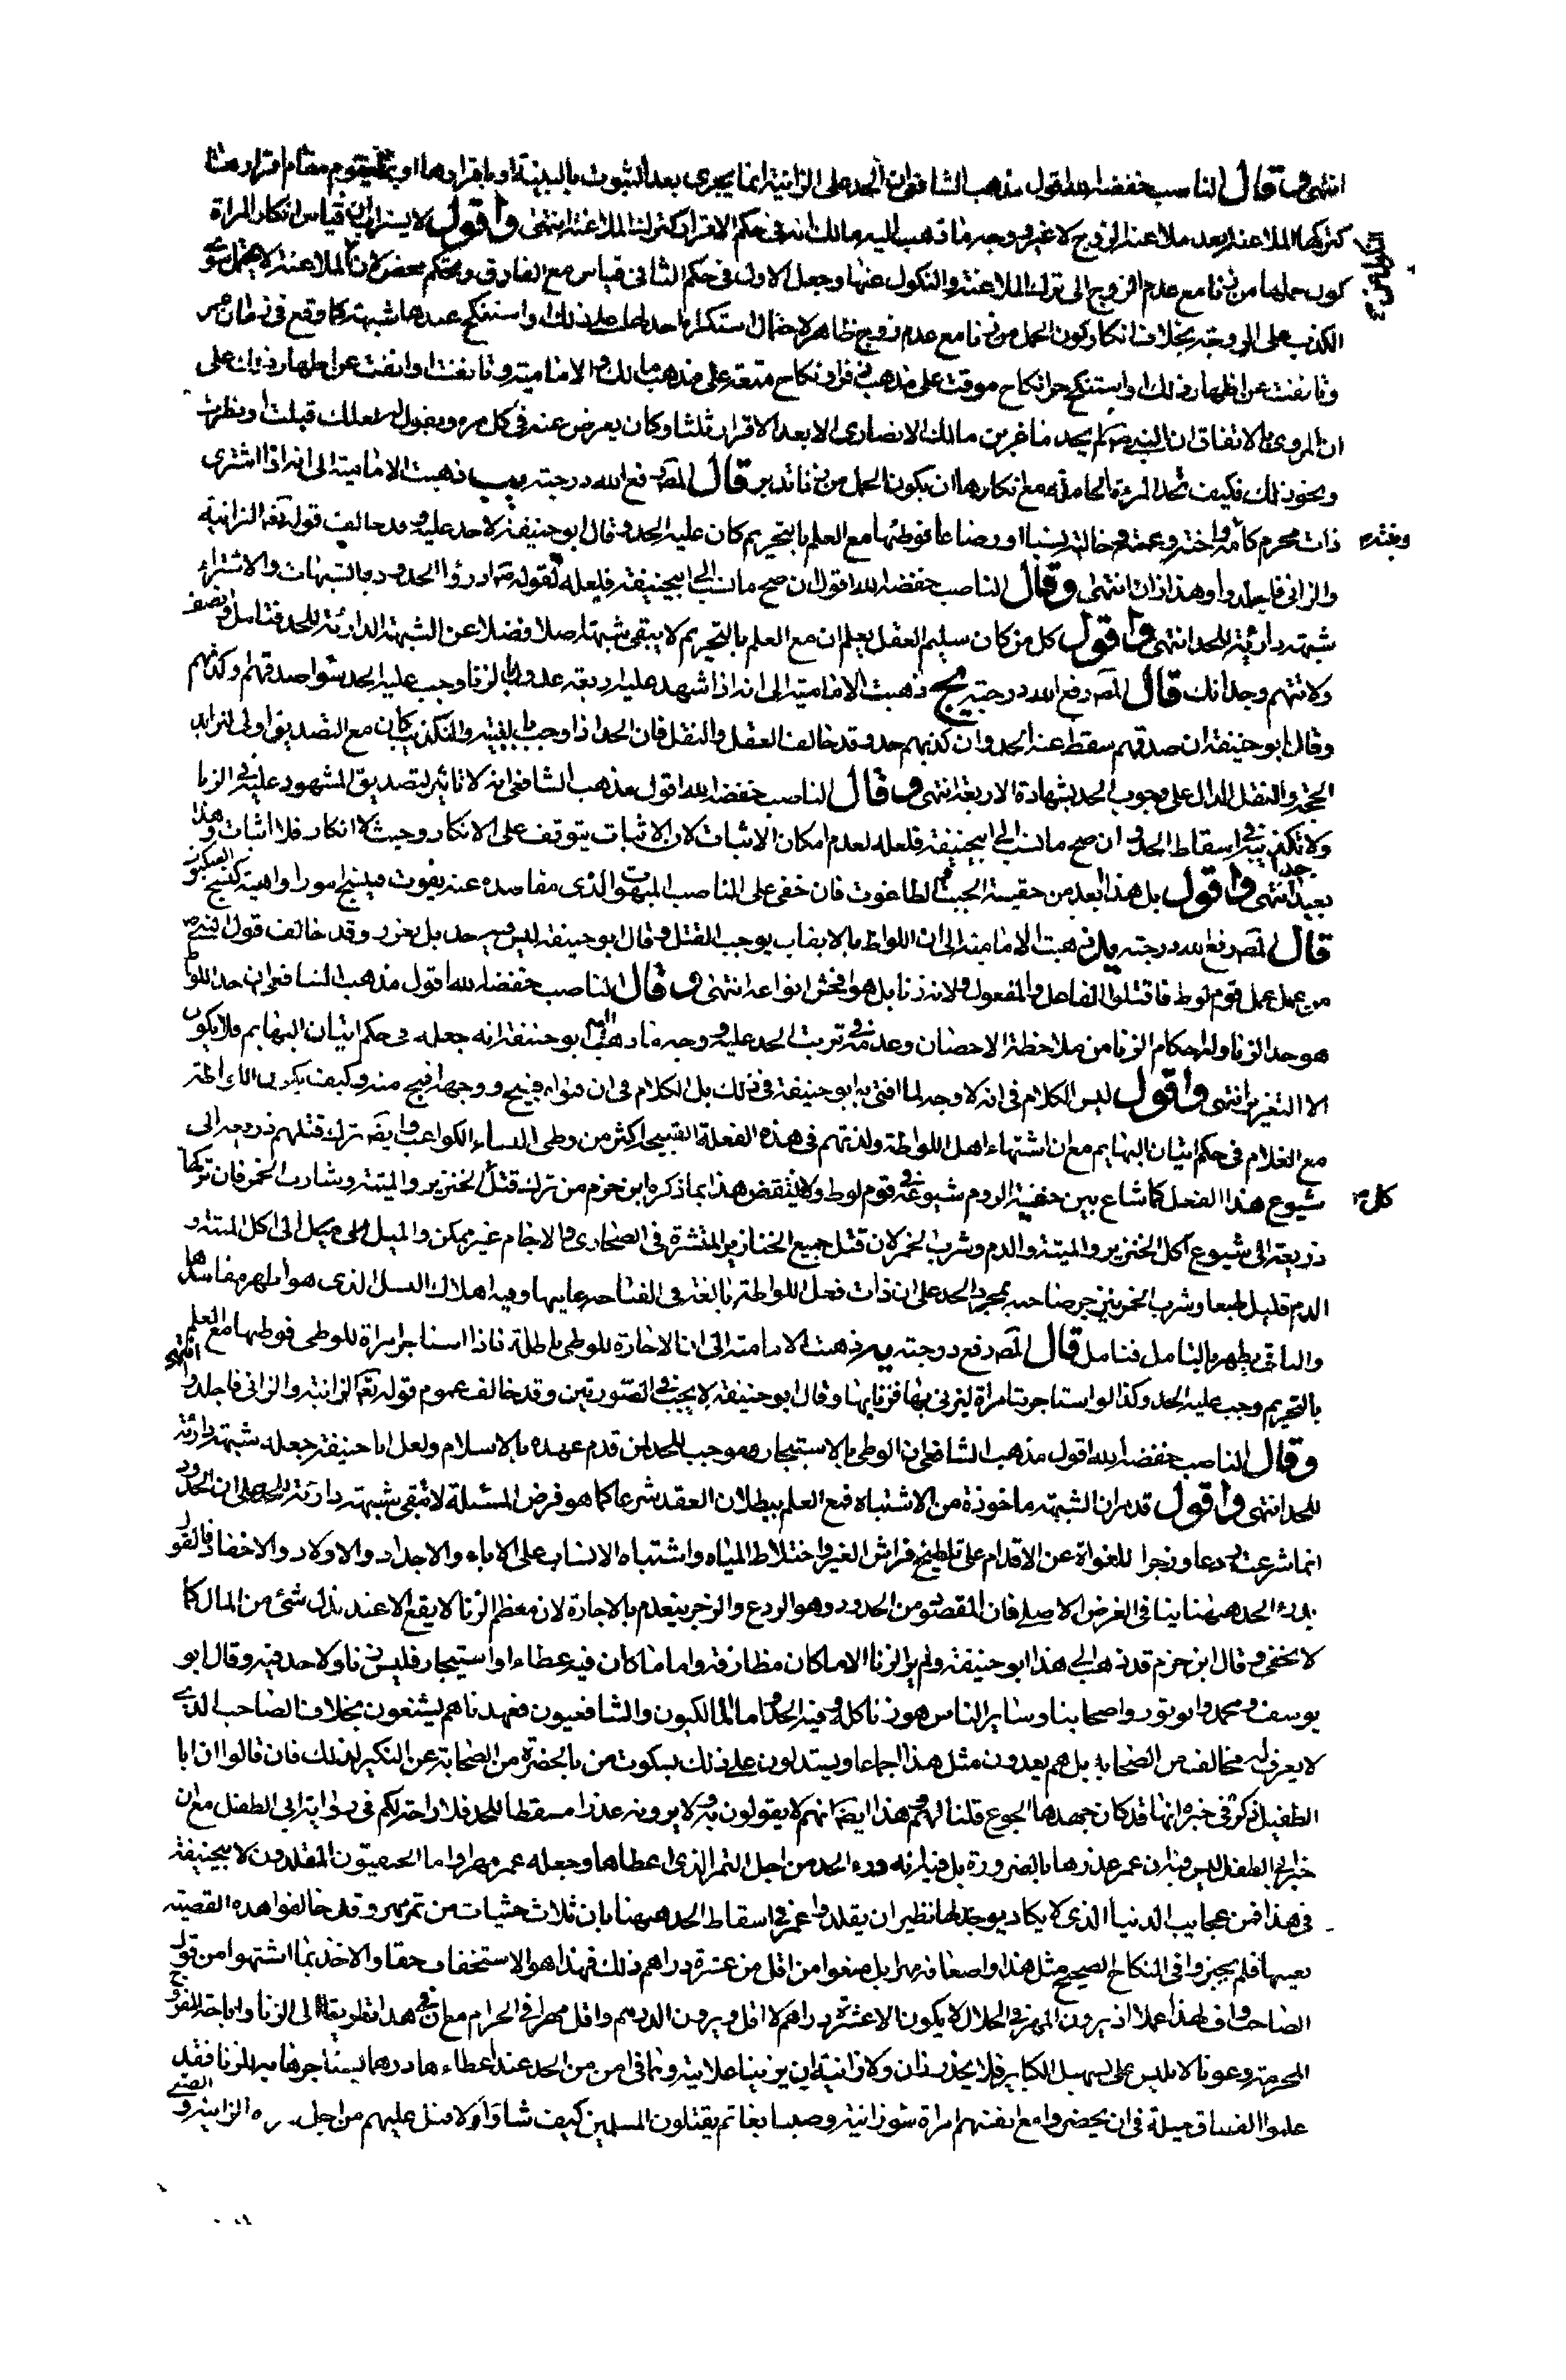 انتهى وقال الناصب خفضه الله اقول مذهب الشافعي ان الحد على الزانية انما يجرى بعد الثبوت بالبينة او باقرارها او بما يقوم مقام اقرارها
كتركها الملاعنة بعد ملاعنة الزوج لا غير ووجه ما ذهب اليه مالك انه في حكم الاقرار كترك الملاعنة انتهى واقول لا يستراب ان قياس انكار المراة
كون حملها من زنا مع عدم الزوج الى ترك الملاعنة والنكول عنها وجعل الاول في حكم الثاني قياس مع الفارق وتحكم محض لان الملاعنة لا يحتمل
الكذب على الزوجة بخلاف انكار كون الحمل من زنا مع عدم زوج ظاهر لاحتمال استكراه احد لها على ذلك او استنكح عبدها شبهة كما وقع في زمان عمر
وتانفت عن اظهار ذلك او استنكح حرا نكاح موقت على مذهب زفر او نكاح متعة على مذهب مالك والامامية وتانفت او انفت عن اظهار ذلك على
ان المروي بالاتفاق ان النبي ص لم يحد ماعز بن مالك الانصاري الا بعد الاقرار ثلثا وكان يعرض عنه في كل مرة ويقول له لعلك قبلت او نظرت
ونحو ذلك فكيف تحد المرءة الحاملة مع انكارها ان يكون الحمل من زنا تدبر قال المص رفع الله درجته يب ذهبت الامامية الى انه اذا اشترى
ذات محرم كامه واخته وعمته وخالته نسبا او رضاعا فوطئها مع العلم بالتحريم كان عليه الحد وقال ابو حنيفة لا حد عليه وقد خالف قوله تعالى الزانية
وبنته
والزاني فاجلدوا وهذا زان انتهى وقال الناصب خفضه الله اقول ان صح ما نسب الى ابي حنيفة فلعله لقوله ص ادرؤا الحدود بالشبهات والاشتراء
شبهة دارئة للحد انتهى واقول كل من كان سليم العقل يعلم ان مع العلم بالتحريم لا يبقى شبهة اصلا فضلا عن الشبهة الدارئة للحد فتامل وانصف
ولا تتهم وجدانك قال المص رفع الله درجته يج ذهبت الامامية الى انه اذا شهد عليه اربعة عدول بالزنا وجب عليه الحد سواء صدقهم او كذبهم
وقال ابو حنيفة ان صدقهم سقط عنه الحد وان كذبهم حد وقد خالف العقل والنقل فان الحد اذا وجب بالبينة والتكذيب كان مع التصديق اولى لتزايد
الحجة والنقل الدال على وجوب الحد بشهادة الاربعة انتهى وقال الناصب خفضه الله اقول مذهب الشافعي انه لا تاثير لتصديق المشهود عليه في الزنا
ولا تكذيبه في اسقاط الحد وان صح ما نسب الى ابي حنيفة فلعله لعدم امكان الاثبات لان الاثبات يتوقف على الانكار وحيث لا انكار فلا اثبات وهذا
بعيد جدا انتهى واقول بل هذا ابعد من حقيقة الجبت الطاغوت فان خفى على الناصب المبهوت الذي مفاسده عنه يفوت فينسج امورا واهية كنسج العنكبوت
قال المص رفع الله درجته يد ذهبت الامامية الى ان اللواط بالايقاب يوجب القتل وقال ابو حنيفة ليس فيه حد بل يعزر وقد خالف قول النبي ص
من عمل عمل قوم لوط فاقتلوا الفاعل والمفعول ولانه زنا بل هو افحش انواعه انتهى وقال الناصب خفضه الله اقول مذهب الشافعي ان حد اللواط
هو حد الزنا وله احكام الزنا من ملاحظة الاحصان وعدمه في ترتب الحد عليه ووجه ما ذهب اليه ابو حنيفة انه جعله في حكم اتيان البهايم فلا يكون
الا التغرير انتهى واقول ليس الكلام في انه لا وجه لما افتى به ابو حنيفة في ذلك بل الكلام في ان فتواه قبيح ووجهه اقبح منه وكيف يكون اللواطة
مع الغلام في حكم اتيان البهايم مع ان اشتهاء اهل اللواطة ولذتهم في هذه الفعلة القبيحة اكثر من وطى النساء الكواعب وايضا ترك قتلهم ذريعة الى
شيوع هذا الفعل كما شاع بين حنفية الروم شيوعه في قوم لوط ولا ينتقض هذا بما ذكره ابن حزم من ترك قتل اكل الخنزير والميتة وشارب الخمر فان تركها
ذريعة الى شيوع اكل الخنزير والميتة والدم وشرب الخمر لان قتل جميع الخنازير المنتشرة في الصحارى والاجام غير ممكن والميل الى اكل الميتة و
الدم قليل طبعا وشرب الخمر ينزجر صاحبه بمجرد الحد على ان ذات فعل اللواطة بالغة في القباحة غايتها وفيه اهلاك النسل الذي هو اظهر مفاسدها
والباقي يظهر بالتامل فتامل قال المص رفع درجته يه ذهبت الامامية الى ان الاجارة للوطى باطلة فاذا استاجر امراة للوطى فوطئها مع العلم
بالتحريم وجب عليه الحد وكذا لو استاجرت امراة ليزني بها فزنا بها وقال ابو حنيفة لا يجب في الصورتين وقد خالف عموم قوله تعالى الزانية والزاني فاجلدوا انتهى
وقال الناصب خفضه الله اقول مذهب الشافعي ان الوطى بالاستيجار موجب للحد لمن قدم عهده بالاسلام ولعل ابا حنيفة جعله شبهة دارئة
للحد انتهى واقول قد مر ان الشبهة ماخوذة من الاشتباه فمع العلم ببطلان العقد شرعا كما هو فرض المسئلة لا تبقى شبهة دارئة للحد على ان الحدود
انما شرعت ردعا وزجرا للغواة عن الاقدام على تلطيخ فراش الغير واختلاط المياه واشتباه الانساب على الاباء والاجداد والاولاد والاحفاد فالقول
بدرء الحد ههنا ينافي الغرض الاصلي فان المقصود من الحدود وهو الردع والزجر ينعدم بالاجارة لان معظم الزنا لا يقع الا عند بذل شئ من المال كما
لا يخفى وقال ابن حزم قد ذهب الى هذا ابو حنيفة ولم ير الزنا الا ما كان مطارفة واما ما كان فيه عطاء او استيجار فليس زنا ولا حد فيه وقال ابو
يوسف ومحمد وابو ثور واصحابنا وساير الناس هو زنا كله وفيه الحد واما المالكيون والشافعيون فعهدناهم يشنعون بخلاف الصاحب الذي
لا يعرف له مخالف من الصحابة بل هم يعدون مثل هذا اجماعا ويستدلون على ذلك بسكوت من بالحضرة من الصحابة عن النكير لذلك فان قالوا ان ابا
الطفيل ذكر في خبره انها قد كان جهدها الجوع قلنا لهم وهذا ايضا انتم لا يقولون به ولا يرونه عذرا مسقطا للحد فلا راحة لكم في رواية ابي الطفيل مع ان
خبر ابي الطفيل ليس فيه ان عمر عذرها بالضرورة بل فيه انه درء الحد من اجل التمر الذي اعطاها وجعله عمر مهرا واما الحنفيون المقلدون لابي حنيفة
في هذا فمن عجايب الدنيا الذي لا يكاد يوجد لها نظير ان يقلدوا عمر في اسقاط الحد ههنا بان ثلاث حثيات من تمر مهر وقد خالفوا هذه القضية
بعينها فلم يجيزوا في النكاح الصحيح مثل هذا واضعافه مهرا بل منعوا من اقل من عشرة دراهم ذلك فهذا هو الاستخفاف حقا والاخذ بما اشتهوا من قول
الصاحب واف لهذا عملا اذ يرون المهر في الحلال لا يكون الا عشرة دراهم لا اقل ويرون الدرهم واقل مهرا في الحرام مع ان في هذا تطريقا الى الزنا واباحة الفروج
المحرمة وعونا لابليس على تسهيل الكباير فلا يحذر زان ولا زانية ان يزنيا علانية وهما في امن من الحد عند اعطاءها درهما يستاجرها به للزنا فقد
علموا الفساق حيلة في ان يحضروا مع انفسهم امراة سوء زانية وصبيا بغاثم يقتلون المسلمين كيف شاؤا ولا قتل عليهم من اجل المراة الزانية والصبي